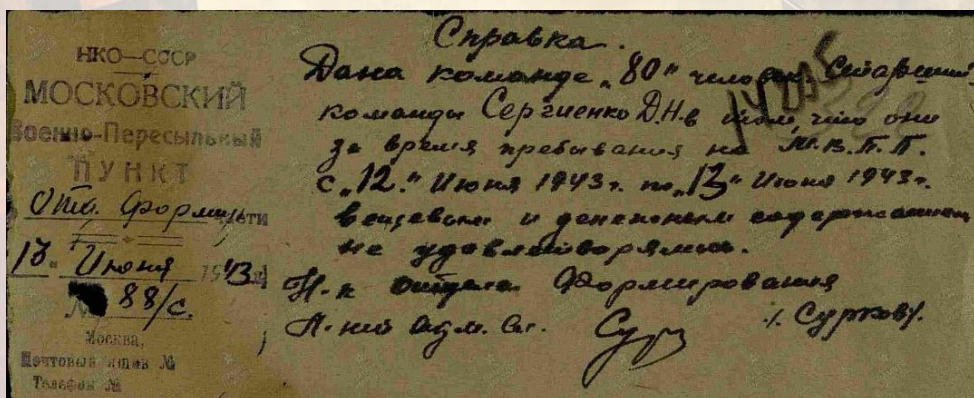 НКО—СССР
МОСКОВСКИЙ
Военно-Пересыльный
ПУНКТ
Отд. Формир. части
"13" Июня 1943 г.
№ 88/с.
Москва,
Почтовый ящик №
Телефон №
Справка.
Дана команде „80" человек, Старший
команды Сергиенко Д.Н. в том, что они
за время пребывания на М.В.П.П.
с „12." Июня 1943г. по „13" Июня 1943г.
вещевым и денежным содержанием
не удовлетворялись.
Н-к отдела Формирования
Сур /. Сурков/.